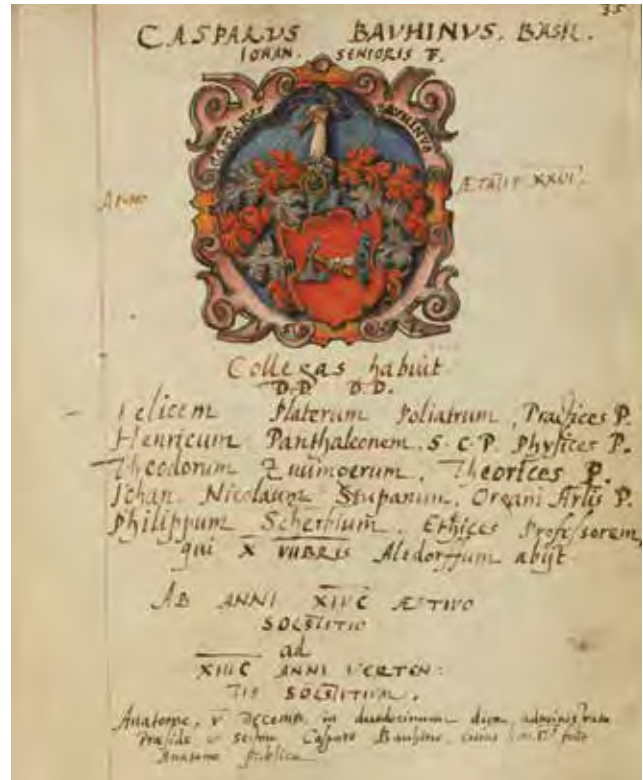 35
CASPARUS BAVHINUS. BASIL.
IOHAN. SENIORIS F.
CASPARUS BAVHINUS
ANNO ÆTATIS XXVI.
Collegas habuit
D.D. D.D.
Felicem Platerum Poliatrum, Practices P.
Henricum Panthaleonem. S. C. P. Physices P.
Theodorum Zuingerum, Theorices P.
Iohan. Nicolaum Stupanum, Organi Artis P.
Philippum Scherbium. Ethices Professorem,
qui X VIIBRIS Altdorffum abijt
AB ANNI XIVC ÆSTIVO
SOLSTITIO
ad
ANNI VERTEN:
TIS SOLSTITIUM.
Anatome, V Decemb. in duodecimum diem, administrata
Præside et Caspare Bauhino, cuius
Anatome publica